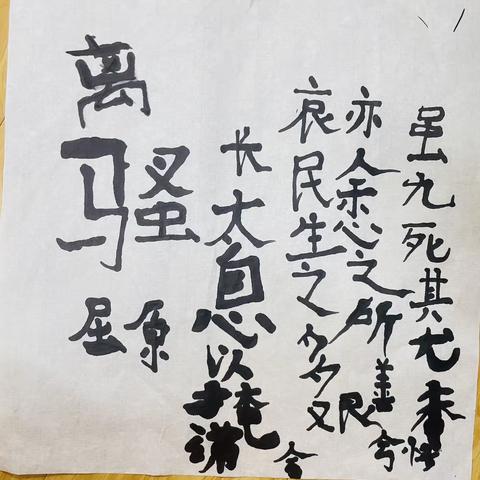 离骚
屈原
长太息以掩涕兮
哀民生之多艰
亦余心之所善兮
虽九死其尤未悔